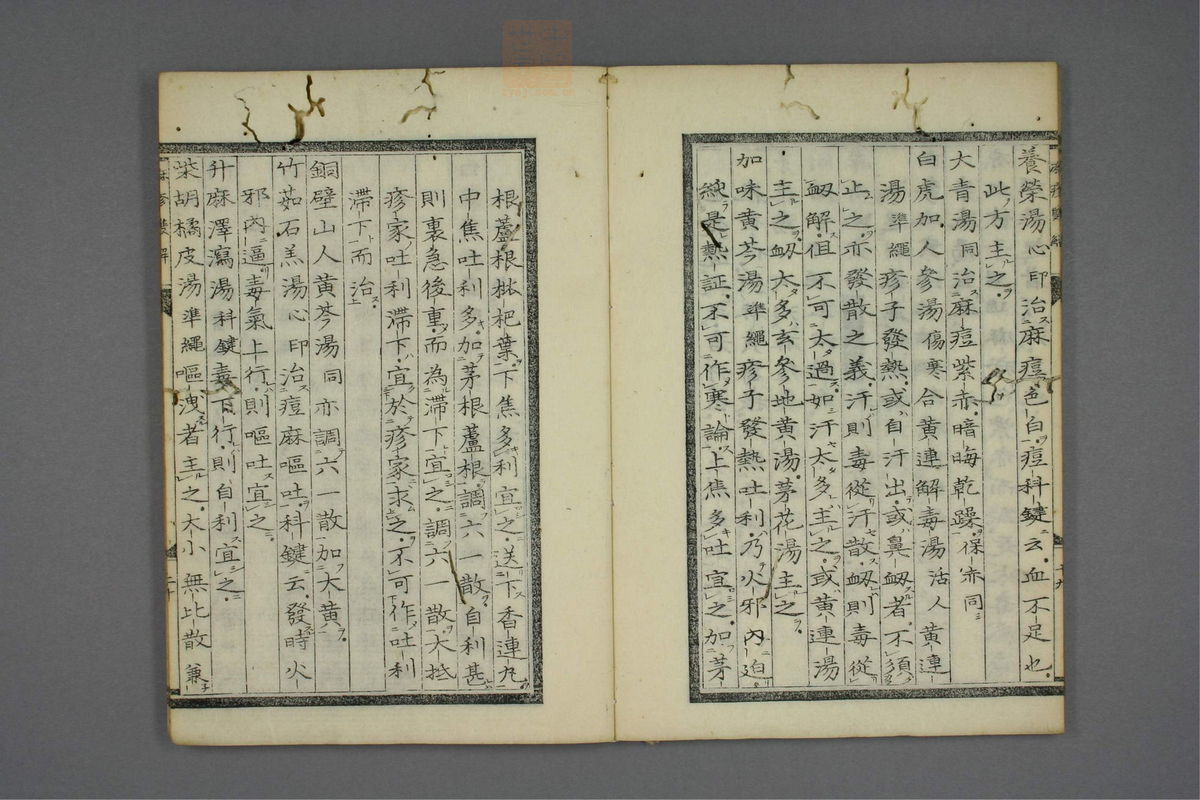 養榮湯心印治麻痘色白痘科鍵云血不足也
此方主之
大青湯同治麻痘紫赤暗晦乾躁保赤同
白虎加人參湯傷寒合黄連解毒湯活人黄連
湯準繩疹子發熱或自汗出或鼻衂者不須
止之亦發散之義汗則毒從汗散衂則毒從
衂解但不可太過如汗太多主之或黄連湯
主之衂太多玄參地黄湯茅花湯主之
加味黄芩湯準繩疹子發熱吐利乃火邪内迫
純是熱証不可作寒論上焦多吐宜之加茅
根蘆根枇杷葉下焦多利宜之送下香連丸
中焦吐利多加茅根蘆根調六一散自利甚
則裏急後重而為滯下宜之調六一散大抵
疹家吐利滯下宜於疹家求之不可作吐利
滯下而治
銅壁山人黄芩湯同亦調六一散加大黄
竹茹石羔湯心印治痘麻嘔吐科鍵云發時火
邪内逼毒氣上行則嘔吐宜之
升麻澤瀉湯科鍵毒下行則自利宜之
柴胡橘皮湯準繩嘔洩者主之大小無比散兼